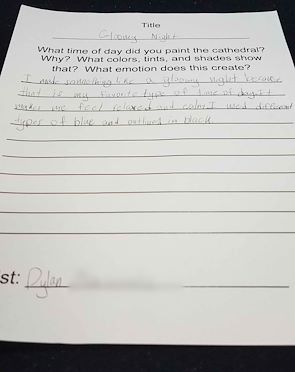 Title
Gloomy Night
What time of day did you paint the cathedral?
Why? What colors, tints, and shades show
that? What emotion does this create?
I made something like a gloomy night because
that is my favorite type of time of day. It
makes me feel relaxed and calm. I used different
types of blue and outlined in black.
st: Dylan